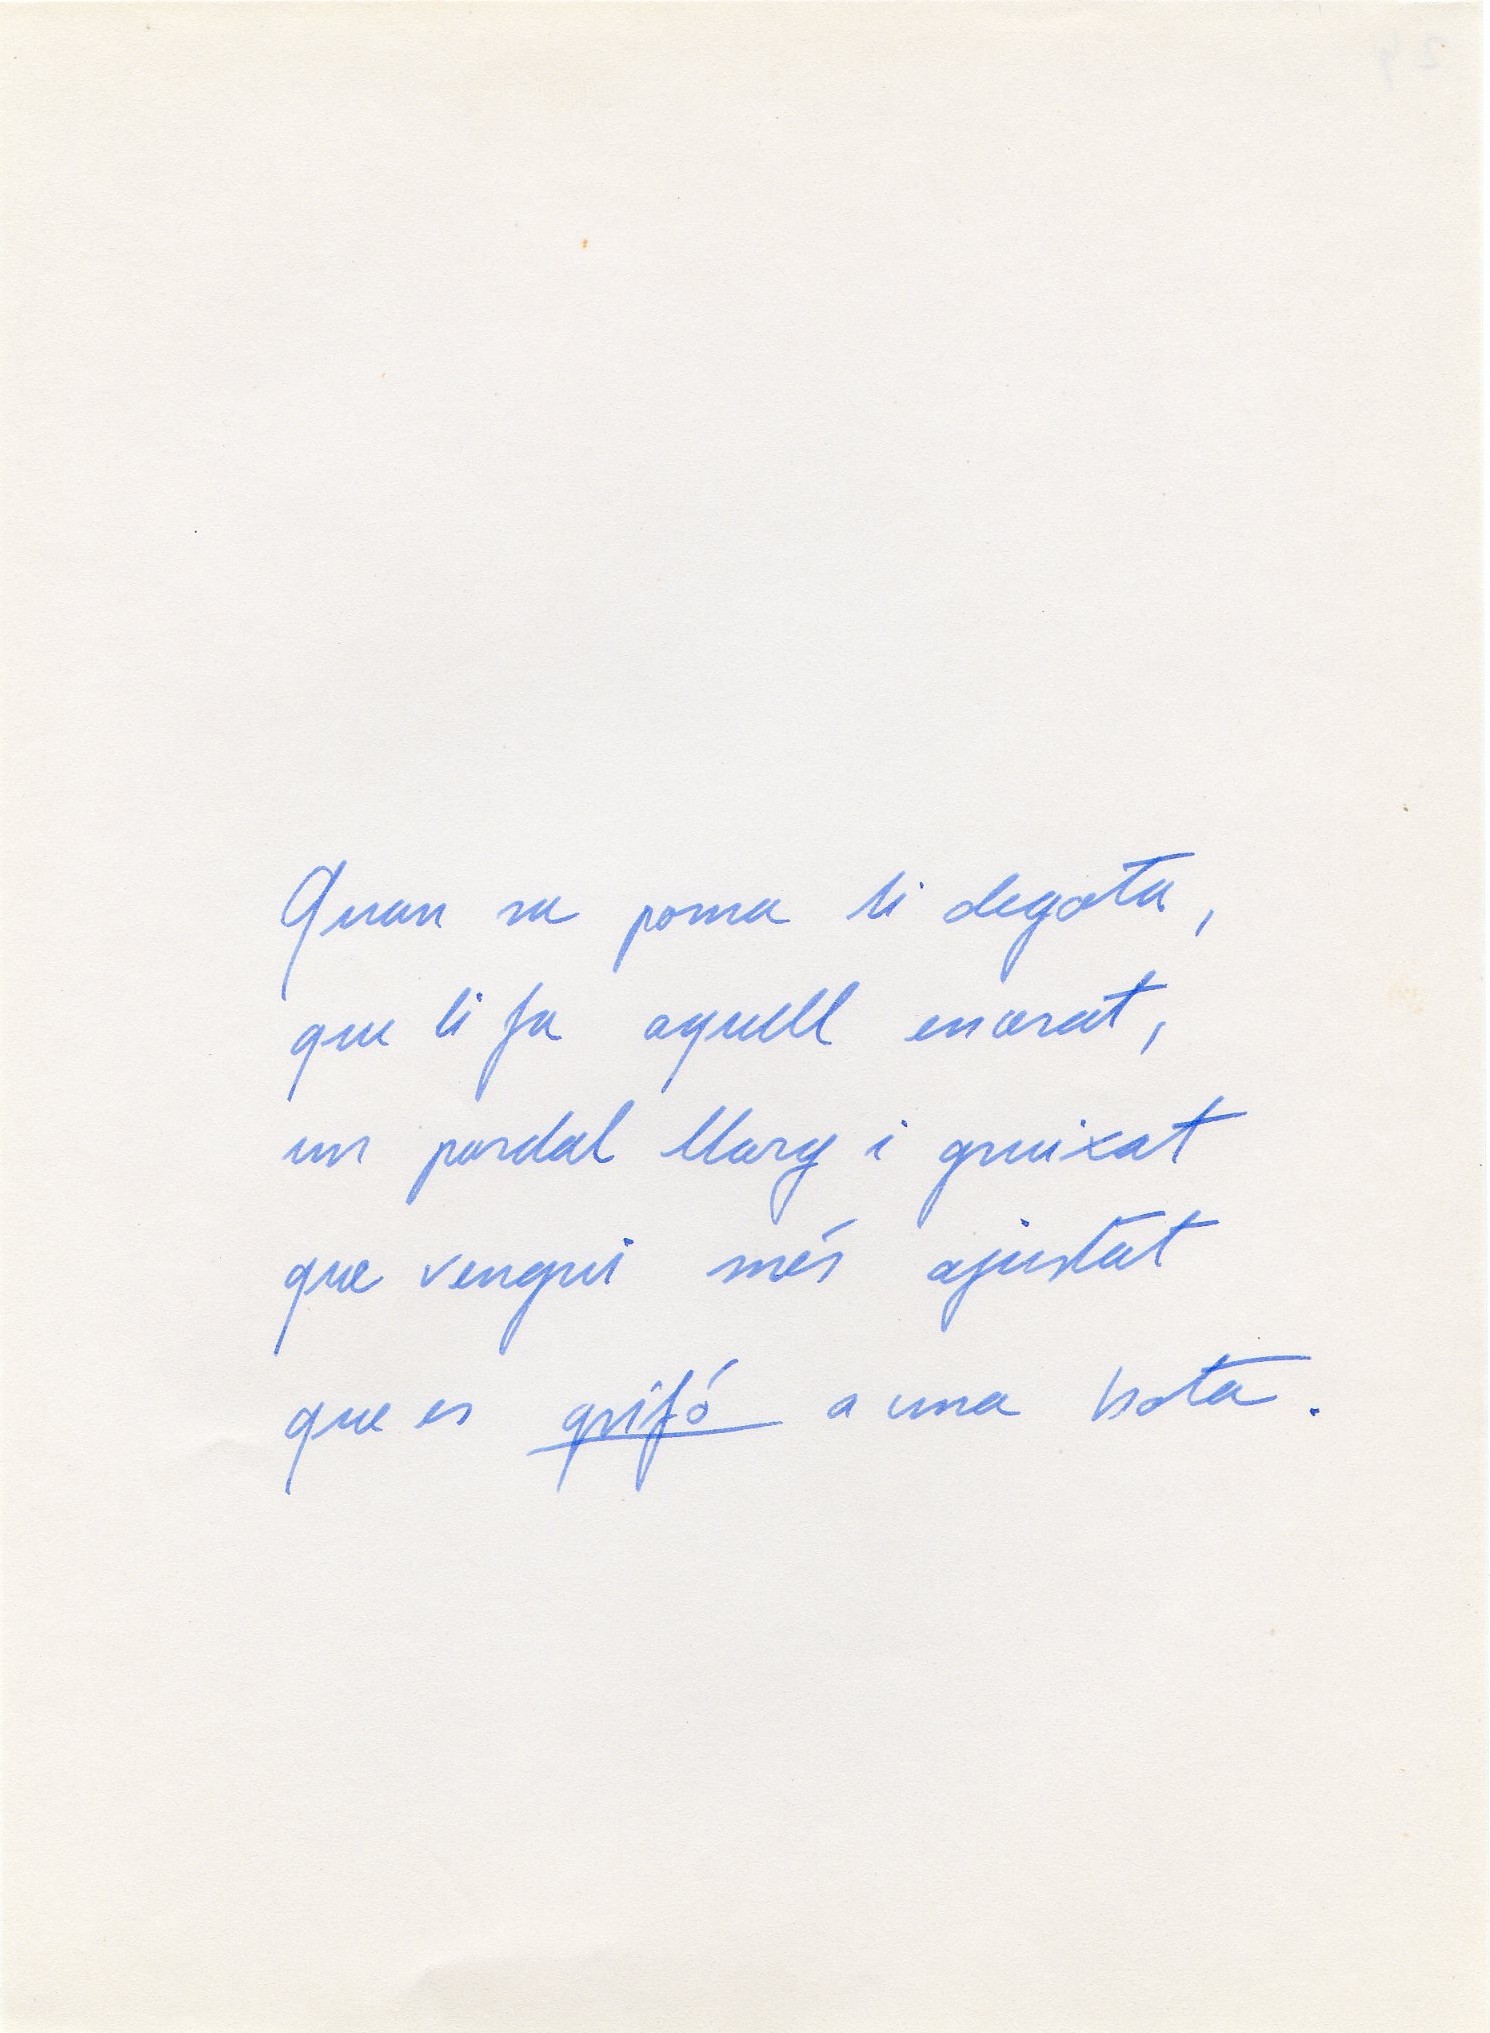 Quan sa poma li degota,
que li fa aquell encarat,
un pardal llarg i gruixat
que vengui més ajustat
que es grifó a una bota.